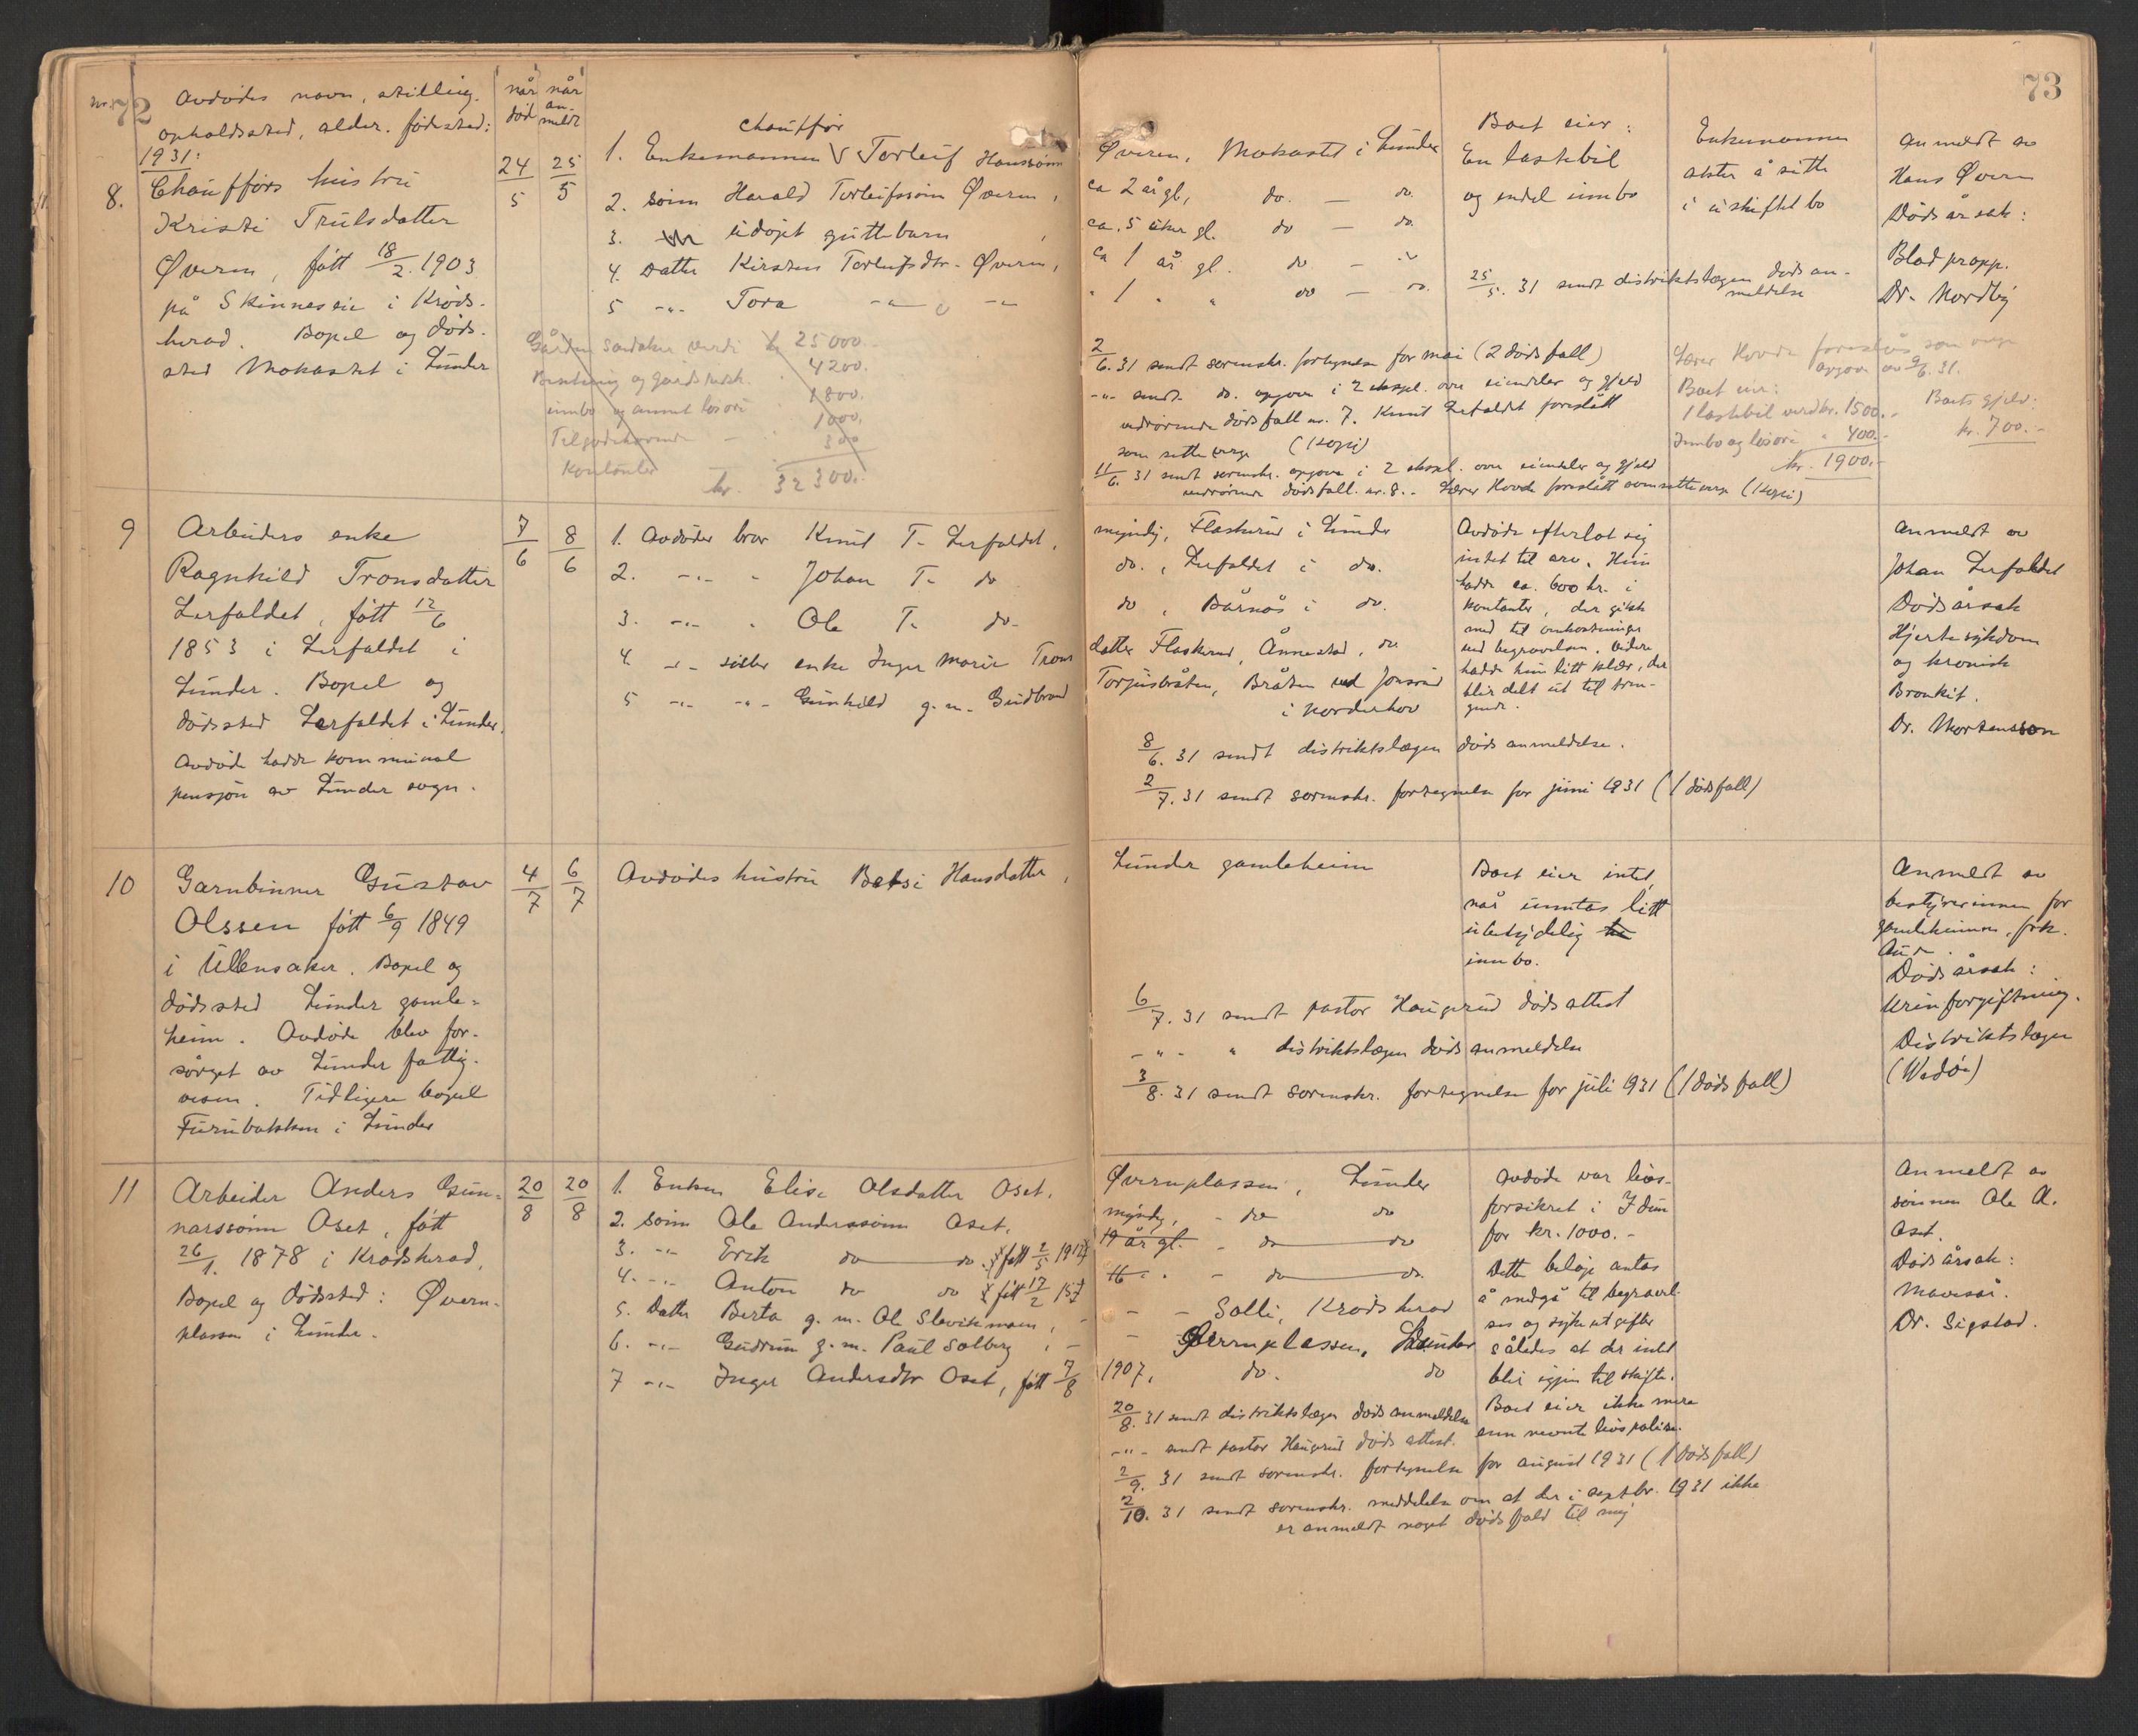 nr. 72
Avdødes navn, stilling.
opholdssted, alder. fødested:
når død
når anmeldt
1931:
8.
Chaufførs hustru
Kristi Trulsdatter
Øveren, født 18/2. 1903
på Skinneseie i Krøds-
herad. Bopel og døds-
sted Mokastet i Lunder
24/5
25/5
chauffør
1. Enkemannen V Torleif Hanssønn
2. sønn Harald Torleifssønn Øveren,
3. udøpt guttebarn
4. Datter Kirsten Torleifsdtr. Øveren,
5 -"- Tora -"- -"-
Gården Sandaker verdi kr 25000.-
Besetning og gårdsredsk. 4200.-
innbo og annet løsøre 1800.
Tilgodehavende - 1000.
Kontanter 300
kr. 32300.-
73
Øveren, Mokastet i Lunder
ca 2 år gl, do. — do.
ca. 5 uker gl. do — do.
ca 1 år gl. do — "
" 1 " " do — do.
Boet eier:
En lastebil
og endel innbo
Enkemannen
akter å sitte
i uskiftet bo
Anmeldt av
Hans Øveren
Dødsårsak:
Blodpropp.
Dr. Nordby
25/5. 31 sendt distriktslægen dødsan-
meldelse
2/6. 31 sendt sorenskr. fortegnelse for mai (2 dødsfall)
-"- sendt do. opgave i 2 ekspl. over eiendeler og gjeld
vedrørende dødsfall nr. 7. Knut Lerfaldet foreslått
som setteverge (Kopi)
11/6. 31 sendt sorenskr. opgave i 2 ekspl. over eiendeler og gjeld
vedrørende dødsfall nr. 8. Lærer Hovde foreslått som setteverge (Kopi)
Lærer Hovde foreslås som verge
opgave av 9/6. 31.
Boet eier:
1 lastebil verd kr. 1500.-
Innbo og løsøre " 400.-
kr. 1900.-
Boets gjeld:
kr. 700.-
9
Arbeiders enke
Ragnhild Tronsdatter
Lerfaldet, født 12/6
1853 i Lerfaldet i
Lunder. Bopel og
dødssted Lerfaldet i Lunder.
Avdøde hadde kommunal
pensjon av Lunder sogn.
7/6
8/6
1. Avdødes bror Knut T. Lerfaldet,
2. -"- " Johan T. do
3. -"- " Ole T. do-
4. -"- søster enke Inger Marie Trons
5 -"- -"- Gunhild g.m. Gudbrand
myndig, Flaskerud i Lunder
do., Lerfaldet i do.
do, Bårnås i do.
datter Flaskerud, Ånnestad, do
Torjusbråten, Bråten ved Jonsrud
i Norderhov
Avdøde efterlot sig
intet til arv. Hun
hadde ca. 600 kr. i
kontanter, der gikk
med til omkostninger
ved begravelsen. Videre
hadde hun litt klær, der
blir delt ut til tren-
gende.
Anmeldt av
Johan Lerfaldet
Dødsårsak
Hjertesykdom
og kronisk
Bronkit.
Dr. Mortensson
8/6. 31 sendt distriktslægen dødsanmeldelse.
2/7. 31 sendt sorenskr. fortegnelse for juni 1931 (1 dødsfall)
10
Garnbinner Gustav
Olssen født 6/9 1849
i Ullensaker. Bopel og
dødssted Lunder gamle-
heim. Avdøde blev for-
sørget av Lunder fattig-
vesen. Tidligere bopel
Furubakken i Lunder
4/7
6/7
Avdødes hustru Betsi Hansdatter,
Lunder gamleheim
Boet eier intet,
når unntas litt
ubetydelig
innbo.
Anmeldt av
bestyrerinnen for
gamleheimen, frk.
Dødsårsak:
Urinforgiftning.
Distriktslægen
(Wedøe)
6/7. 31 sendt pastor Haugerud dødsattest
-"- " distriktslægen dødsanmeldelse
3/8. 31 sendt sorenskr. fortegnelse for juli 1931 (1 dødsfall)
11
Arbeider Anders Gun-
narssønn Oset, født
26/1. 1878 i Krødsherad,
Bopel og dødssted: Øvern-
plassen i Lunder.
20/8
20/8
1. Enken Elise Olsdatter Oset.
2. sønn Ole Anderssønn Oset.
3. -"- Erik do do født 2/5 1912
4. -"- Anton do do født 17/2 157
5. Datter Berta g.m. Ole Slevikmoen, -
6. -"- Gudrun g.m. Paul Solberg, -
7 -"- Inger Andersdtr Oset, født 7/8
Øvernplassen, Lunder
myndig, - do do
19 år gl. - do do
16 " " - do do
- - Solli, Krødsherad
- Øvernplassen, Lunder
1907, do. do
Avdøde var livs-
forsikret i Idun
for kr. 1000.-
Dette beløp antas
å medgå til begravel-
ses og sykeutgifter
således at der intet
blir igjen til skifte.
Boet eier ikke mere
enn nevnte livspolise.
Anmeldt av
sønnen Ole A.
Oset.
Dødsårsak:
Mavesår.
Dr. Sigstad.
20/8. 31 sendt distriktslægen dødsanmeldelse
-"- sendt pastor Haugerud dødsattest.
2/9. 31 sendt sorenskr. fortegnelse for august 1931 (1 dødsfall)
2/10. 31 sendt sorenskr. meddelelse om at der i septbr. 1931 ikke
er anmeldt noget dødsfald til mig